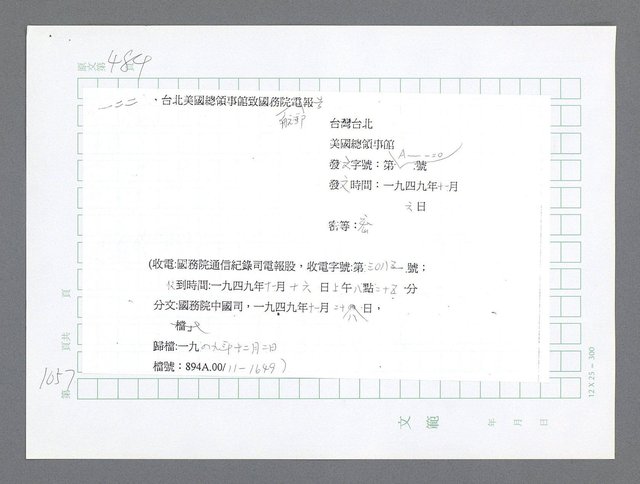 原文第484頁
一二二、台北美國總領事館致國務院電報
航郵
台灣台北
美國總領事館
發文字號：第A—120號
發文時間：一九四九年十一月
六日
密等：密
(收電:國務院通信紀錄司電報股，收電字號:第 號；
收到時間:一九四九年十一月十六日上午八點二十五分
分文:國務院中國司，一九四九年十一月二十 日，
檔
歸檔:一九四九年十二月二日
檔號：894A.00/11-1649)
第1057頁共 頁
12 X 25 = 300
文範
年 月 日